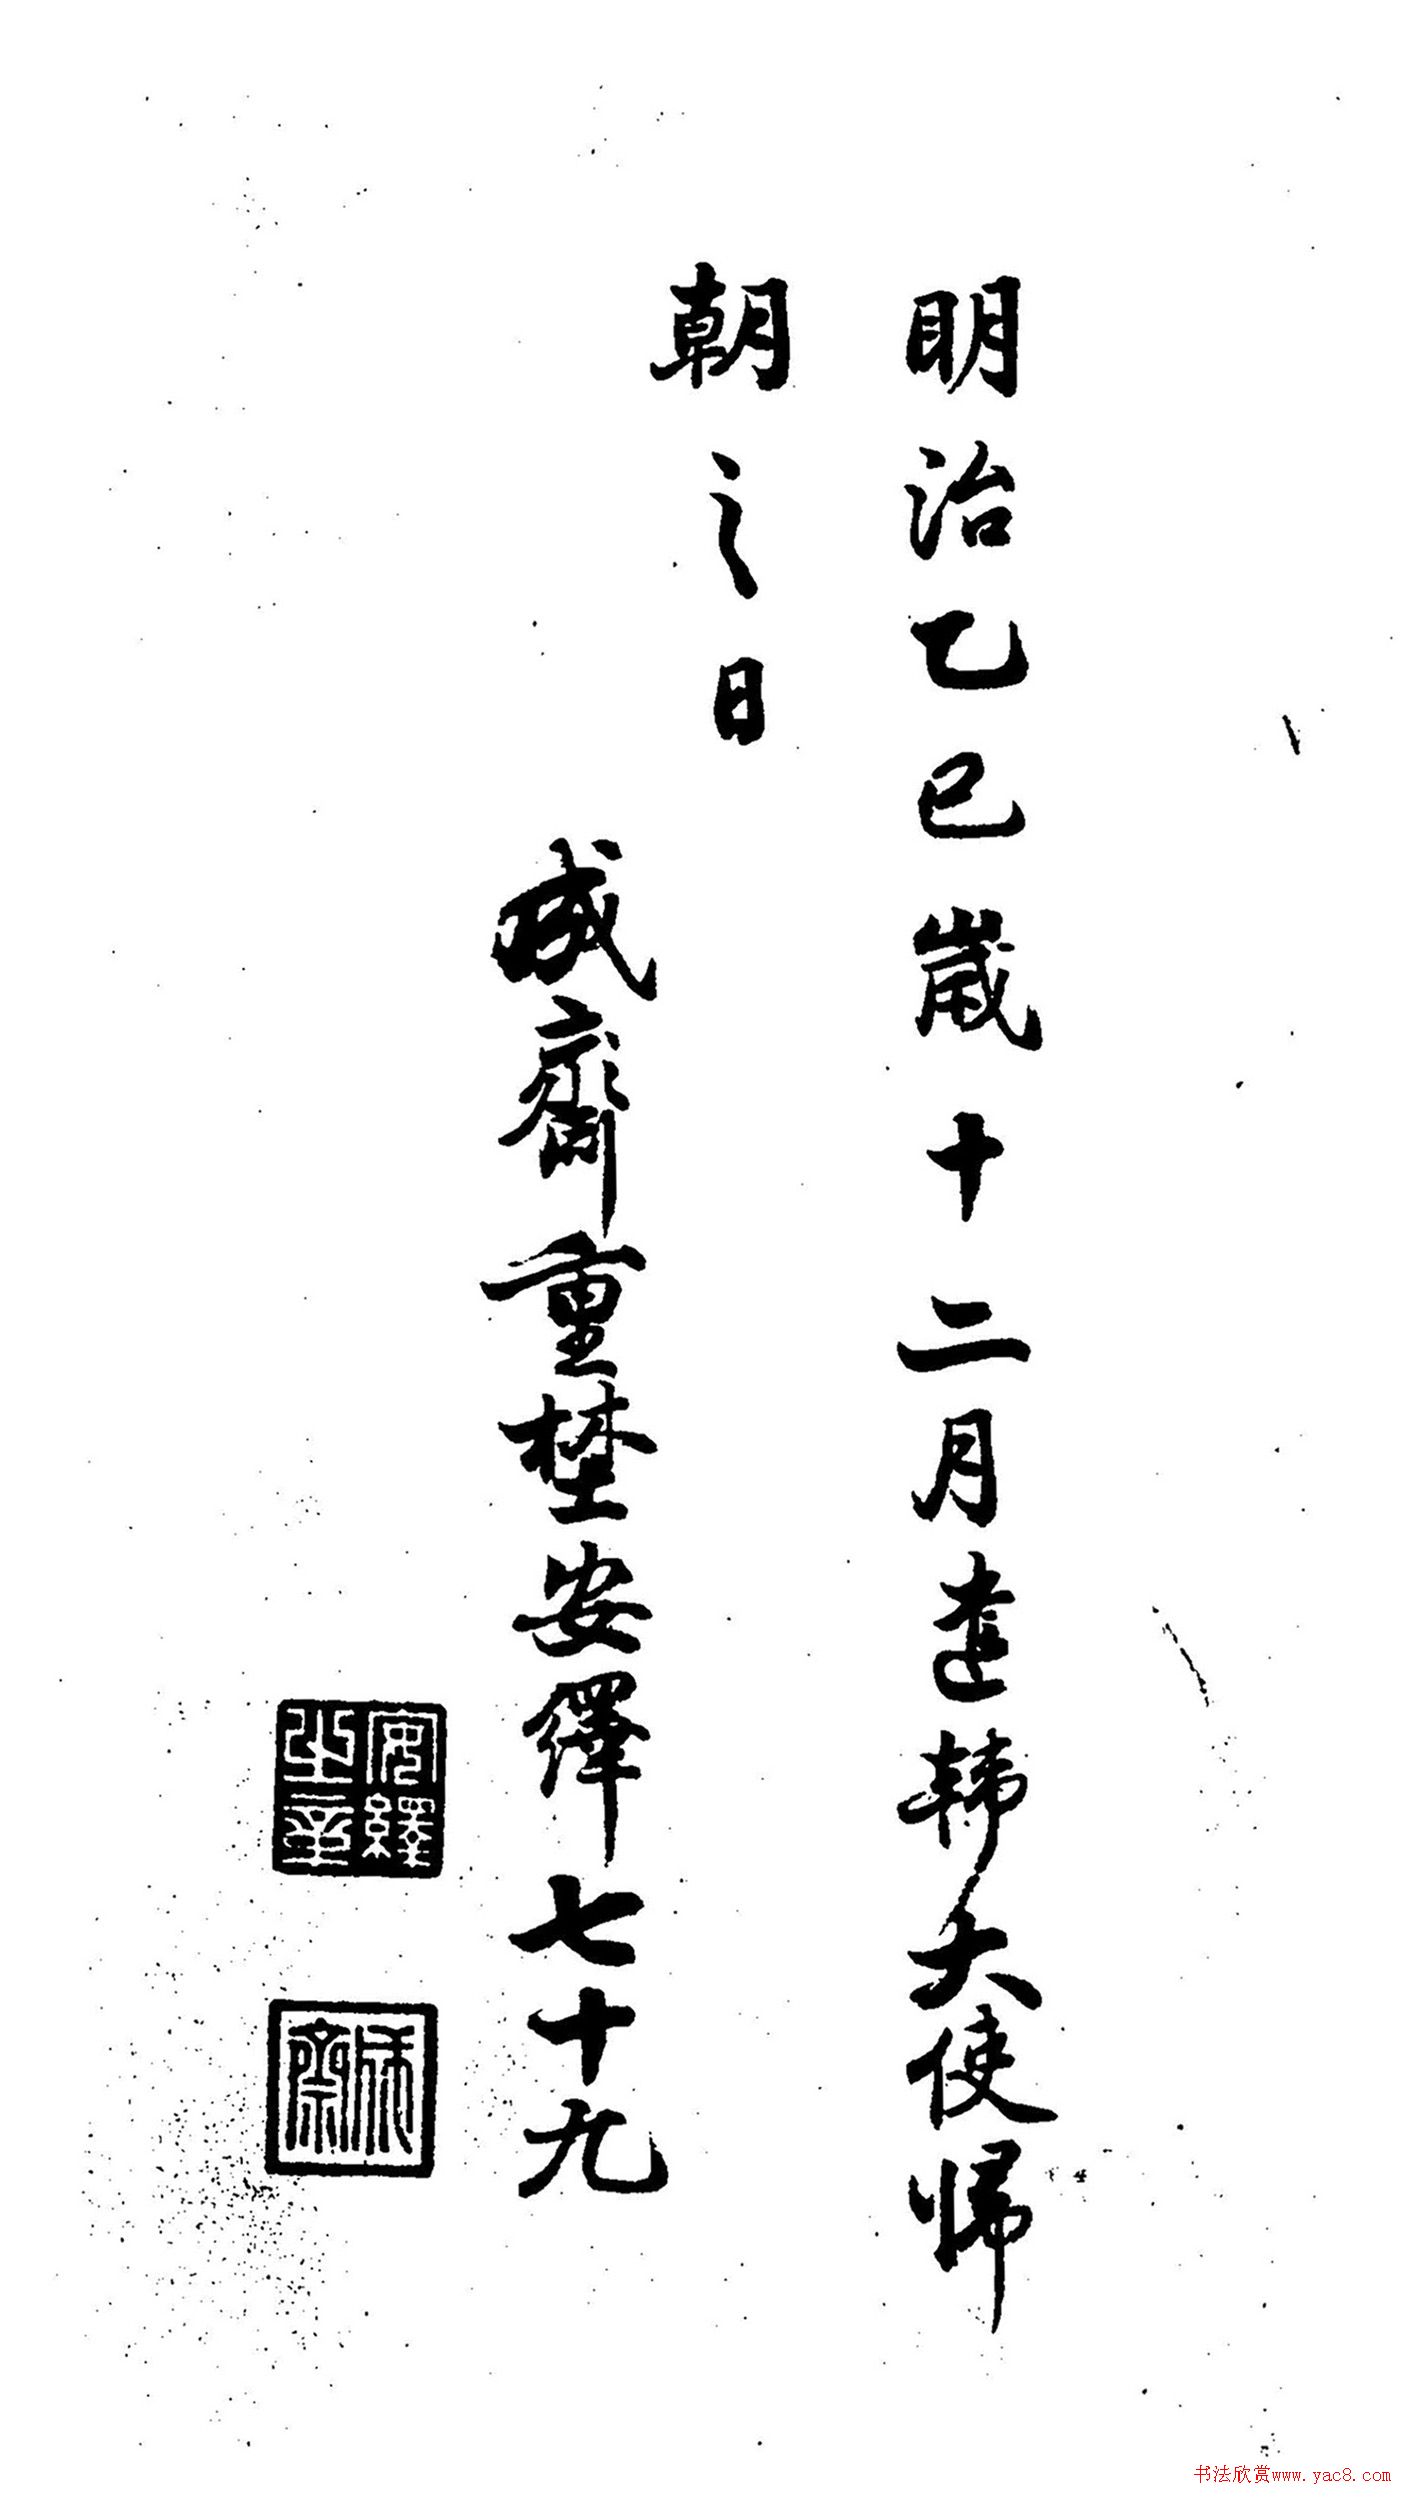 明治乙巳歲十二月遣韓大使帰
朝之日
成齋重埜安繹七十九
安繹
成齋
书法欣赏www.yac8.com